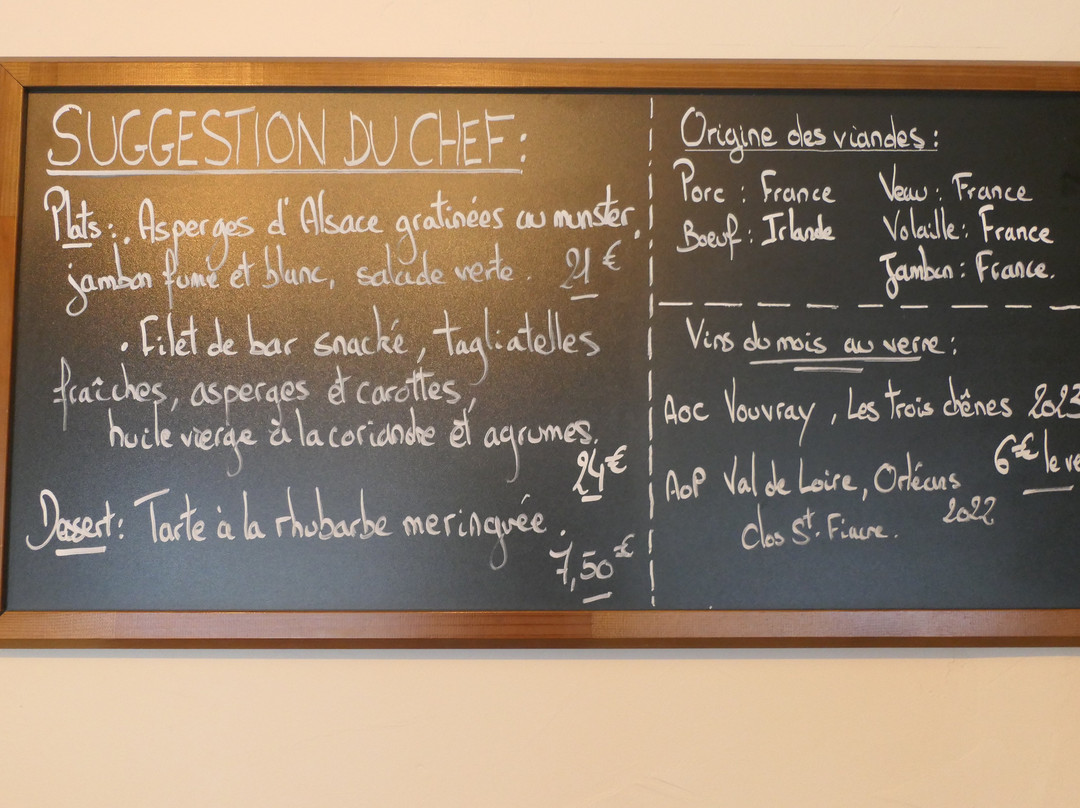 SUGGESTION DU CHEF:
Plats: . Asperges d'Alsace gratinées au munster,
jambon fumé et blanc, salade verte. 21€
. Filet de bar snacké, tagliatelles
fraîches, asperges et carottes,
huile vierge à la coriandre et agrumes.
24€
Dessert: Tarte à la rhubarbe meringuée.
7,50€
Origine des viandes:
Porc: France Veau: France
Boeuf: Irlande Volaille: France
Jambon: France.
Vins du mois au verre:
AOC Vouvray, Les trois chênes 2023
6€ le ve
AOP Val de Loire, Orléans
2022
Clos St. Fiacre.